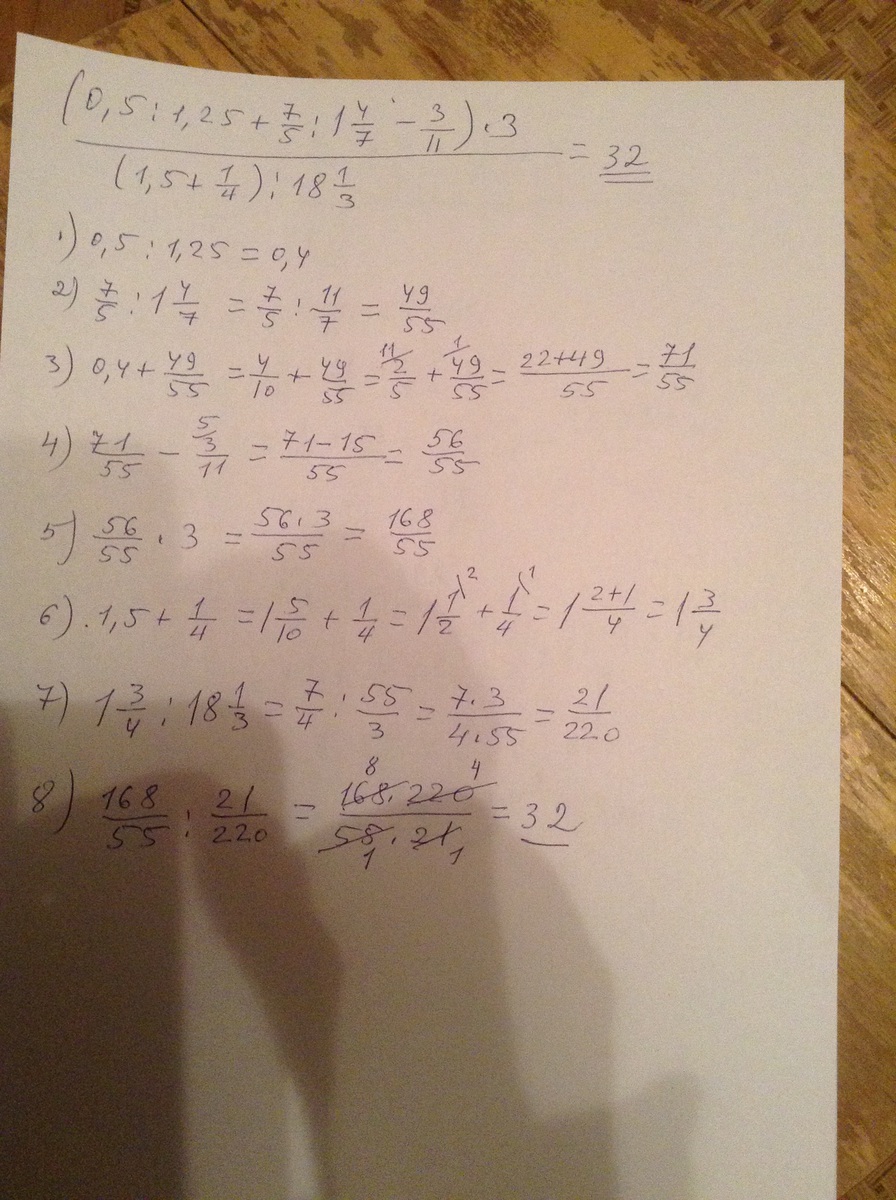 (0,5:1,25+7/5:1 4/7-3/11)·3
(1,5+1/4):18 1/3
=32
1) 0,5:1,25=0,4
2) 7/5:1 4/7=7/5:11/7=49/55
3) 0,4+49/55=4/10+49/55=11/ 2/5+1/ 49/55=22+49/55=71/55
4) 71/55-5/ 3/11=71-15/55=56/55
5) 56/55·3=56·3/55=168/55
6).1,5+1/4=1 5/10+1/4=1 1/2\2+1/4\1=1 2+1/4=1 3/4
7) 1 3/4:18 1/3=7/4:55/3=7·3/4·55=21/220
8) 168/55:21/220=8 168·220 4/55·21 1 1=32